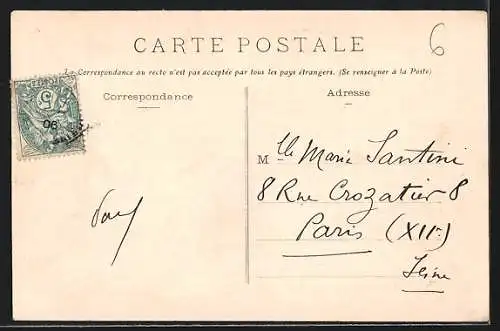 6
CARTE POSTALE
La Correspondance au recto n'est pas acceptée par tous les pays étrangers. (Se renseigner à la Poste)
Correspondance
Adresse
5
06
Mlle Marie Santini
8 Rue Crozatier 8
Paris (XIIe)
Seine